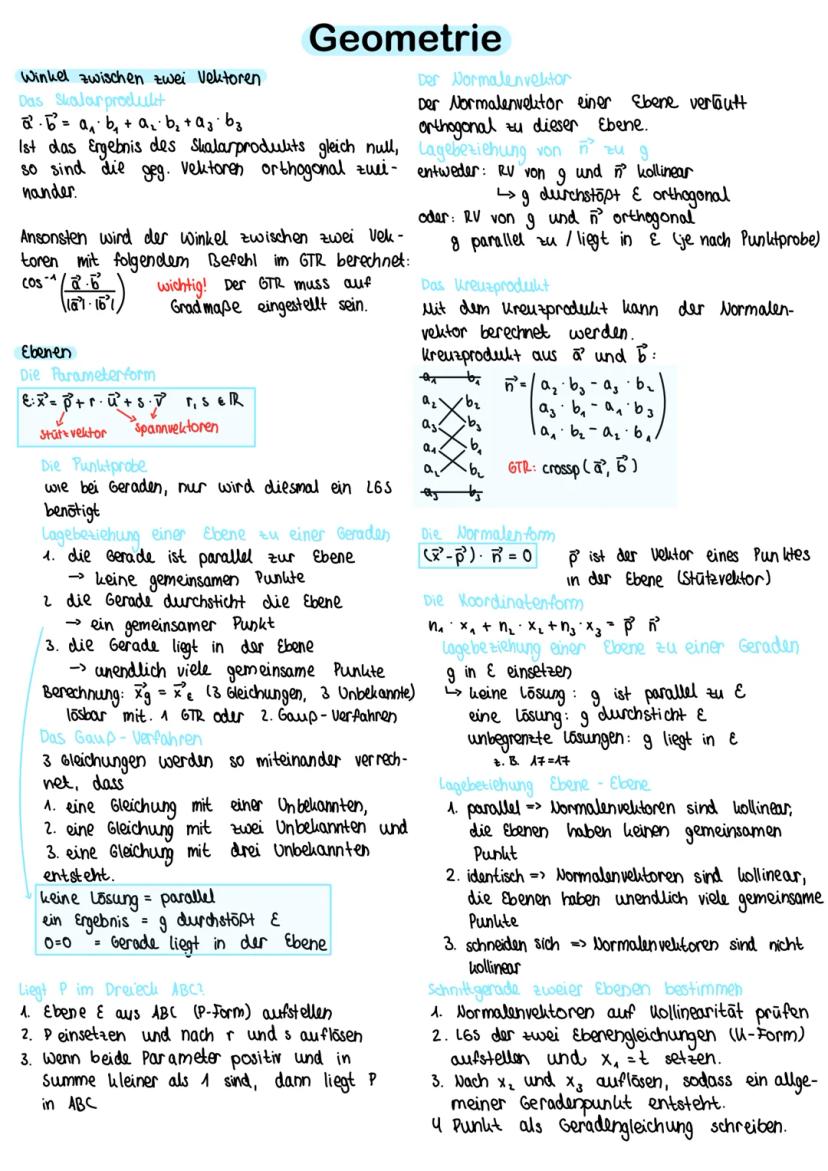 Geometrie
Winkel zwischen zwei Vektoren
Das Skalarprodukt
a⃗ · b⃗ = a₁ · b₁ + a₂ · b₂ + a₃ · b₃
Ist das Ergebnis des Skalarprodukts gleich null,
so sind die geg. Vektoren orthogonal zuei-
nander.
Ansonsten wird der Winkel zwischen zwei Vek-
toren mit folgendem Befehl im GTR berechnet:
cos⁻¹ (a⃗ · b⃗ / |a⃗| · |b⃗|) wichtig! Der GTR muss auf
Gradmaße eingestellt sein.
Ebenen
Die Parameterform
E: x⃗ = p⃗ + r · u⃗ + s · v⃗ r, s ∈ ℝ
Stützvektor Spannvektoren
Die Punktprobe
wie bei Geraden, nur wird diesmal ein LGS
benötigt
Lagebeziehung einer Ebene zu einer Geraden
1. die Gerade ist parallel zur Ebene
→ keine gemeinsamen Punkte
2 die Gerade durchsticht die Ebene
→ ein gemeinsamer Punkt
3. die Gerade liegt in der Ebene
→ unendlich viele gemeinsame Punkte
Berechnung: x⃗g = x⃗ε (3 Gleichungen, 3 Unbekannte)
lösbar mit. 1 GTR oder 2. Gauß-Verfahren
Das Gauß-Verfahren
3 Gleichungen werden so miteinander verrech-
net, dass
1. eine Gleichung mit einer Unbekannten,
2. eine Gleichung mit zwei Unbekannten und
3. eine Gleichung mit drei Unbekannten
entsteht.
keine Lösung = parallel
ein Ergebnis = g durchstößt E
0=0 = Gerade liegt in der Ebene
Liegt P im Dreieck ABC?
1. Ebene E aus ABC (P-Form) aufstellen
2. P einsetzen und nach r und s auflösen
3. Wenn beide Parameter positiv und in
Summe kleiner als 1 sind, dann liegt P
in ABC
Der Normalenvektor
Der Normalenvektor einer Ebene verläuft
orthogonal zu dieser Ebene.
Lagebeziehung von n⃗ zu g
entweder: RV von g und n⃗ kollinear
↳ g durchstößt E orthogonal
oder: RV von g und n⃗ orthogonal
g parallel zu / liegt in E (je nach Punktprobe)
Das Kreuzprodukt
Mit dem Kreuzprodukt kann der Normalen-
vektor berechnet werden.
Kreuzprodukt aus a⃗ und b⃗:
a₁ b₁
a₂ b₂
a₃ b₃
a₁ b₁
a₂ b₂
a₃ b₃
n⃗ = ( a₂ · b₃ - a₃ · b₂
a₃ · b₁ - a₁ · b₃
a₁ · b₂ - a₂ · b₁ )
GTR: crossp (a⃗, b⃗)
Die Normalenform
(x⃗ - p⃗) · n⃗ = 0 p⃗ ist der Vektor eines Punktes
in der Ebene (Stützvektor)
Die Koordinatenform
n₁ · x₁ + n₂ · x₂ + n₃ · x₃ = p⃗ n⃗
Lagebeziehung einer Ebene zu einer Geraden
g in E einsetzen
↳ keine Lösung: g ist parallel zu E
eine Lösung: g durchsticht E
unbegrenzte Lösungen: g liegt in E
z. B. 17=17
Lagebeziehung Ebene - Ebene
1. parallel => Normalenvektoren sind kollinear,
die Ebenen haben keinen gemeinsamen
Punkt
2. identisch => Normalenvektoren sind kollinear,
die Ebenen haben unendlich viele gemeinsame
Punkte
3. schneiden sich => Normalenvektoren sind nicht
kollinear
Schnittgerade zweier Ebenen bestimmen
1. Normalenvektoren auf Kollinearität prüfen
2. LGS der zwei Ebenengleichungen (K-Form)
aufstellen und x₁ = t setzen.
3. Nach x₂ und x₃ auflösen, sodass ein allge-
meiner Geradenpunkt entsteht.
4 Punkt als Geradengleichung schreiben.